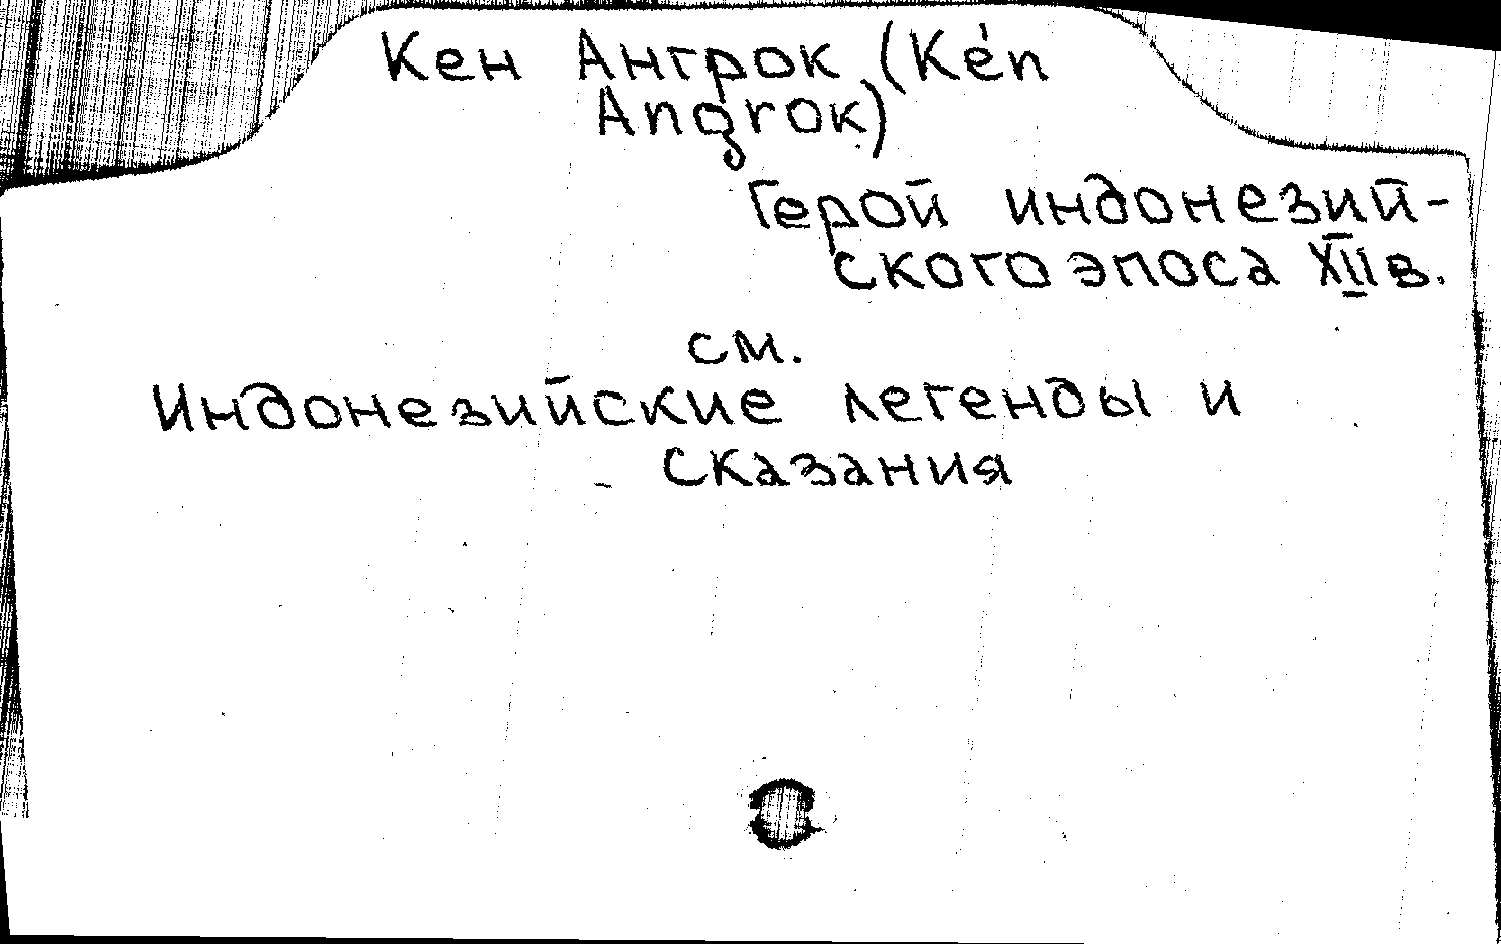 Кен Ангрок (Kén
Angrok)
Герой индонезий-
ского эпоса XII в.
см.
Индонезийские легенды и
сказания